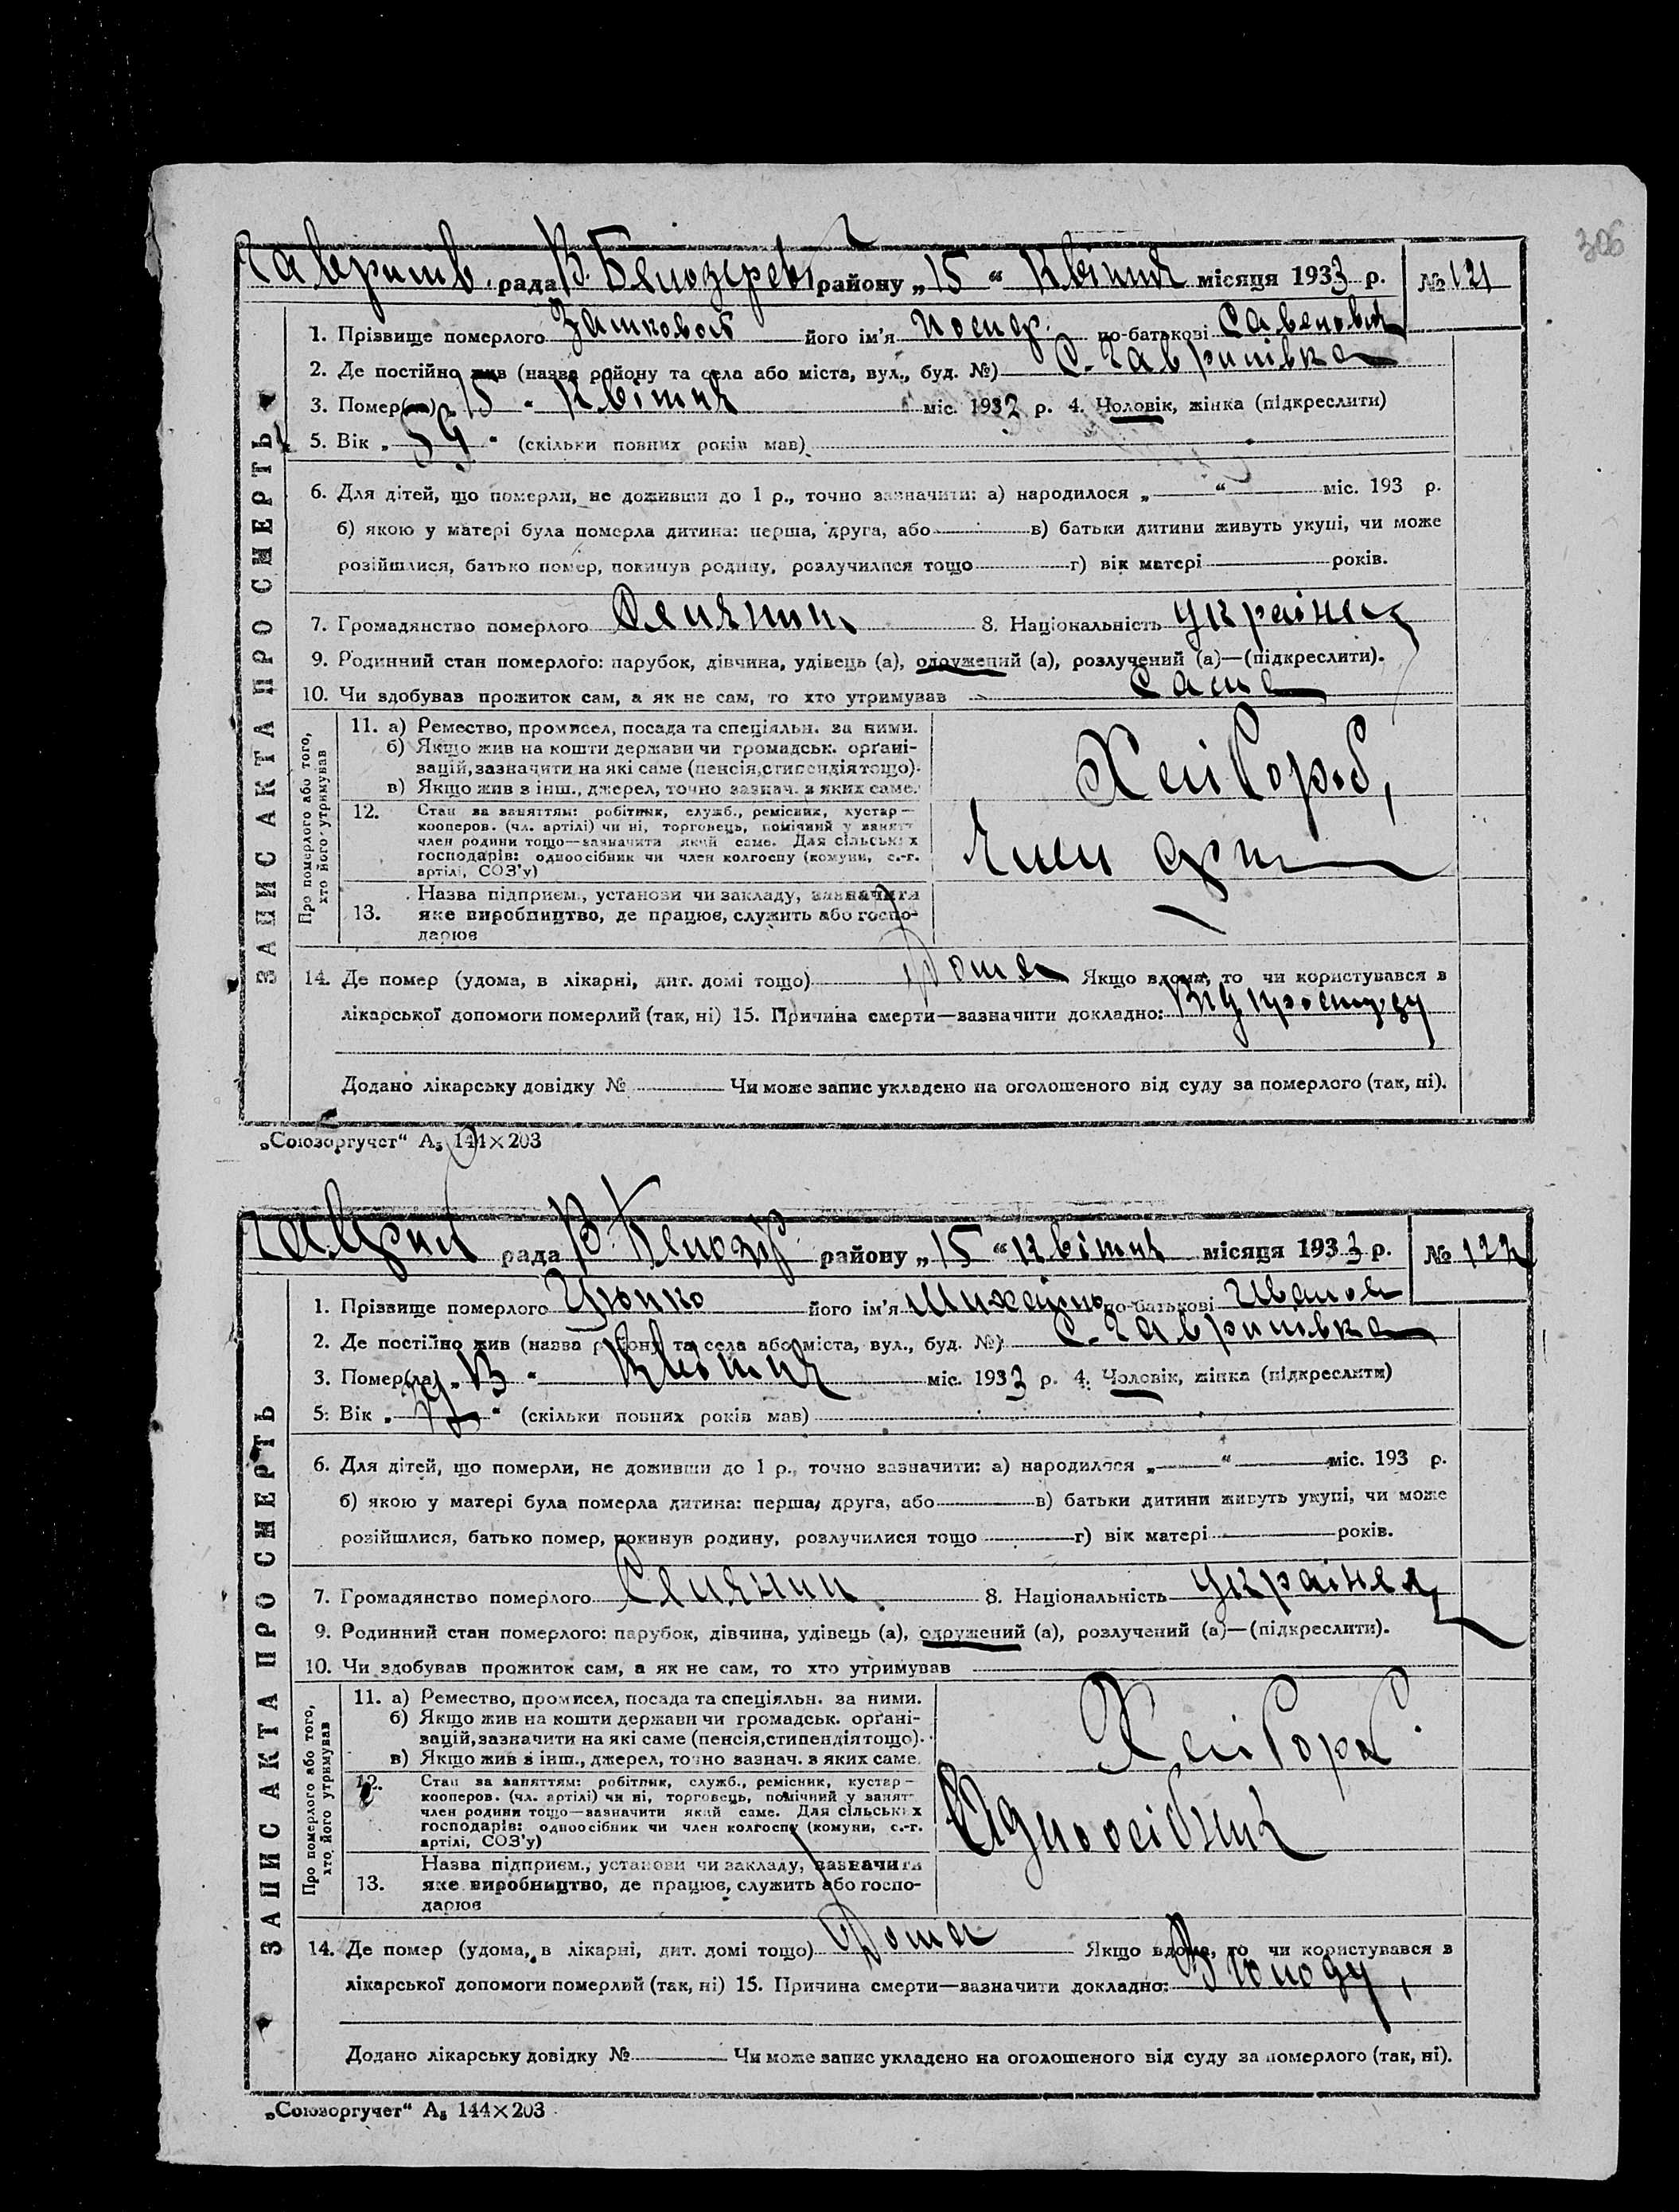 306
Гаврилів. рада В. Білозерсь району „15“ Квітня місяця 1933 р. № 121
1. Прізвище померлого його ім'я по-батькові
2. Де постійно жив (назва району та села або міста, вул., буд. №) С. Гаврилівка
3. Помер(ла) „15“ Квітня міс. 1933 р. 4. Чоловік, жінка (підкреслити)
5. Вік „59“ (скільки повних років мав)
6. Для дітей, що померли, не доживши до 1 р., точно зазначити: а) народилося „ “ міс. 193 р.
б) якою у матері була померла дитина: перша, друга, або в) батьки дитини живуть укупі, чи може
розійшлися, батько помер, покинув родину, розлучилися тощо г) вік матері років.
7. Громадянство померлого Селянин 8. Національність Українец
9. Родинний стан померлого: парубок, дівчина, удівець (а), одружений (а), розлучений (а)—(підкреслити).
10. Чи здобував прожиток сам, а як не сам, то хто утримував
11. а) Ремество, промисел, посада та спеціяльн. за ними.
б) Якщо жив на кошти держави чи громадськ. орґані-
зацій, зазначити на які саме (пенсія, стипендія тощо).
в) Якщо жив з інш., джерел, точно зазнач. з яких саме.
Хлібороб,
12. Стан за заняттям: робітник, служб., ремісник, кустар—
кооперов. (чл. артілі) чи ні, торговець, помічний у занятт
член родини тощо—зазначити який саме. Для сільських
господарів: одноосібник чи член колгоспу (комуни, с.-г.
артілі, СОЗ'у)
Член арт
13. Назва підприєм., установи чи закладу, зазначити
яке виробництво, де працює, служить або госпо-
дарює
Про померлого або того,
хто його утримував
14. Де помер (удома, в лікарні, дит. домі тощо) Дома Якщо вдома, то чи користувався в
лікарської допомоги померлий (так, ні) 15. Причина смерти—зазначити докладно: Від простуди
Додано лікарську довідку № Чи може запис укладено на оголошеного від суду за померлого (так, ні).
ЗАПИС АКТА ПРО СМЕРТЬ
„Союзоргучет“ А₅ 144×203
Гаврил рада В. Білозер району „15“ квітня місяця 1933 р. № 122
1. Прізвище померлого Цюпко його ім'я Михайло по-батькові Іванов
2. Де постійно жив (назва району та села або міста, вул., буд. №) С. Гавриловка
3. Помер(ла) Квітня міс. 1933 р. 4. Чоловік, жінка (підкреслити)
5. Вік „ “ (скільки повних років мав)
6. Для дітей, що померли, не доживши до 1 р., точно зазначити: а) народилося „ “ міс. 193 р.
б) якою у матері була померла дитина: перша, друга, або в) батьки дитини живуть укупі, чи може
розійшлися, батько помер, покинув родину, розлучилися тощо г) вік матері років.
7. Громадянство померлого Селянин 8. Національність Українец
9. Родинний стан померлого: парубок, дівчина, удівець (а), одружений (а), розлучений (а)—(підкреслити).
10. Чи здобував прожиток сам, а як не сам, то хто утримував
11. а) Ремество, промисел, посада та спеціяльн. за ними.
б) Якщо жив на кошти держави чи громадськ. орґані-
зацій, зазначити на які саме (пенсія, стипендія тощо).
в) Якщо жив з інш., джерел, точно зазнач. з яких саме.
Хлібороб.
12. Стан за заняттям: робітник, служб., ремісник, кустар—
кооперов. (чл. артілі) чи ні, торговець, помічний у занят
член родини тощо—зазначити який саме. Для сільських
господарів: одноосібник чи член колгоспу (комуни, с.-г.
артілі, СОЗ'у)
Одноосібник
13. Назва підприєм., установи чи закладу, зазначити
яке виробництво, де працює, служить або госпо-
дарює
Про померлого або того,
хто його утримував
14. Де помер (удома, в лікарні, дит. домі тощо) Дома Якщо вдома, то чи користувався в
лікарської допомоги померлий (так, ні) 15. Причина смерти—зазначити докладно:
Додано лікарську довідку № Чи може запис укладено на оголошеного від суду за померлого (так, ні).
ЗАПИС АКТА ПРО СМЕРТЬ
„Союзоргучет“ А₅ 144×203